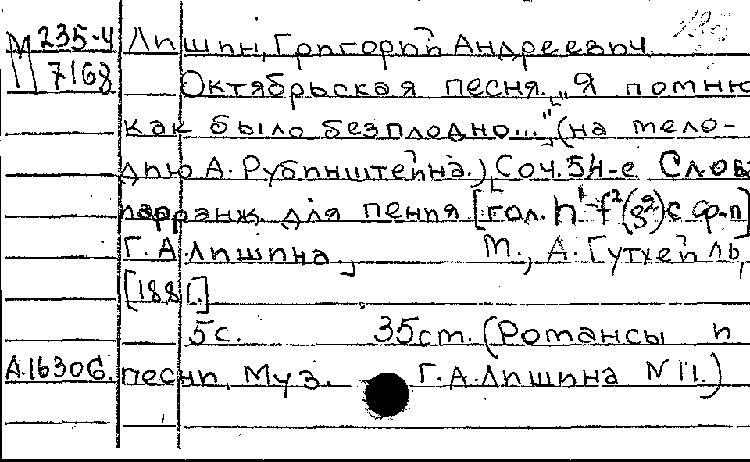 М 235-4 Лишин, Григорий Андреевич
7168 Октябрьская песня. „Я помню
как было безплодно...", (на мело-
дию А. Рубинштейна.) Соч. 54-е Слова
и арранж. для пения [гол. h¹-f²(g²) с ф-п]
Г. А. Лишина., М., А. Гутхейль,
[188 г.]
5с. 35cm. (Романсы и
А.16306. песни. Муз. Г. А. Лишина № 11.)